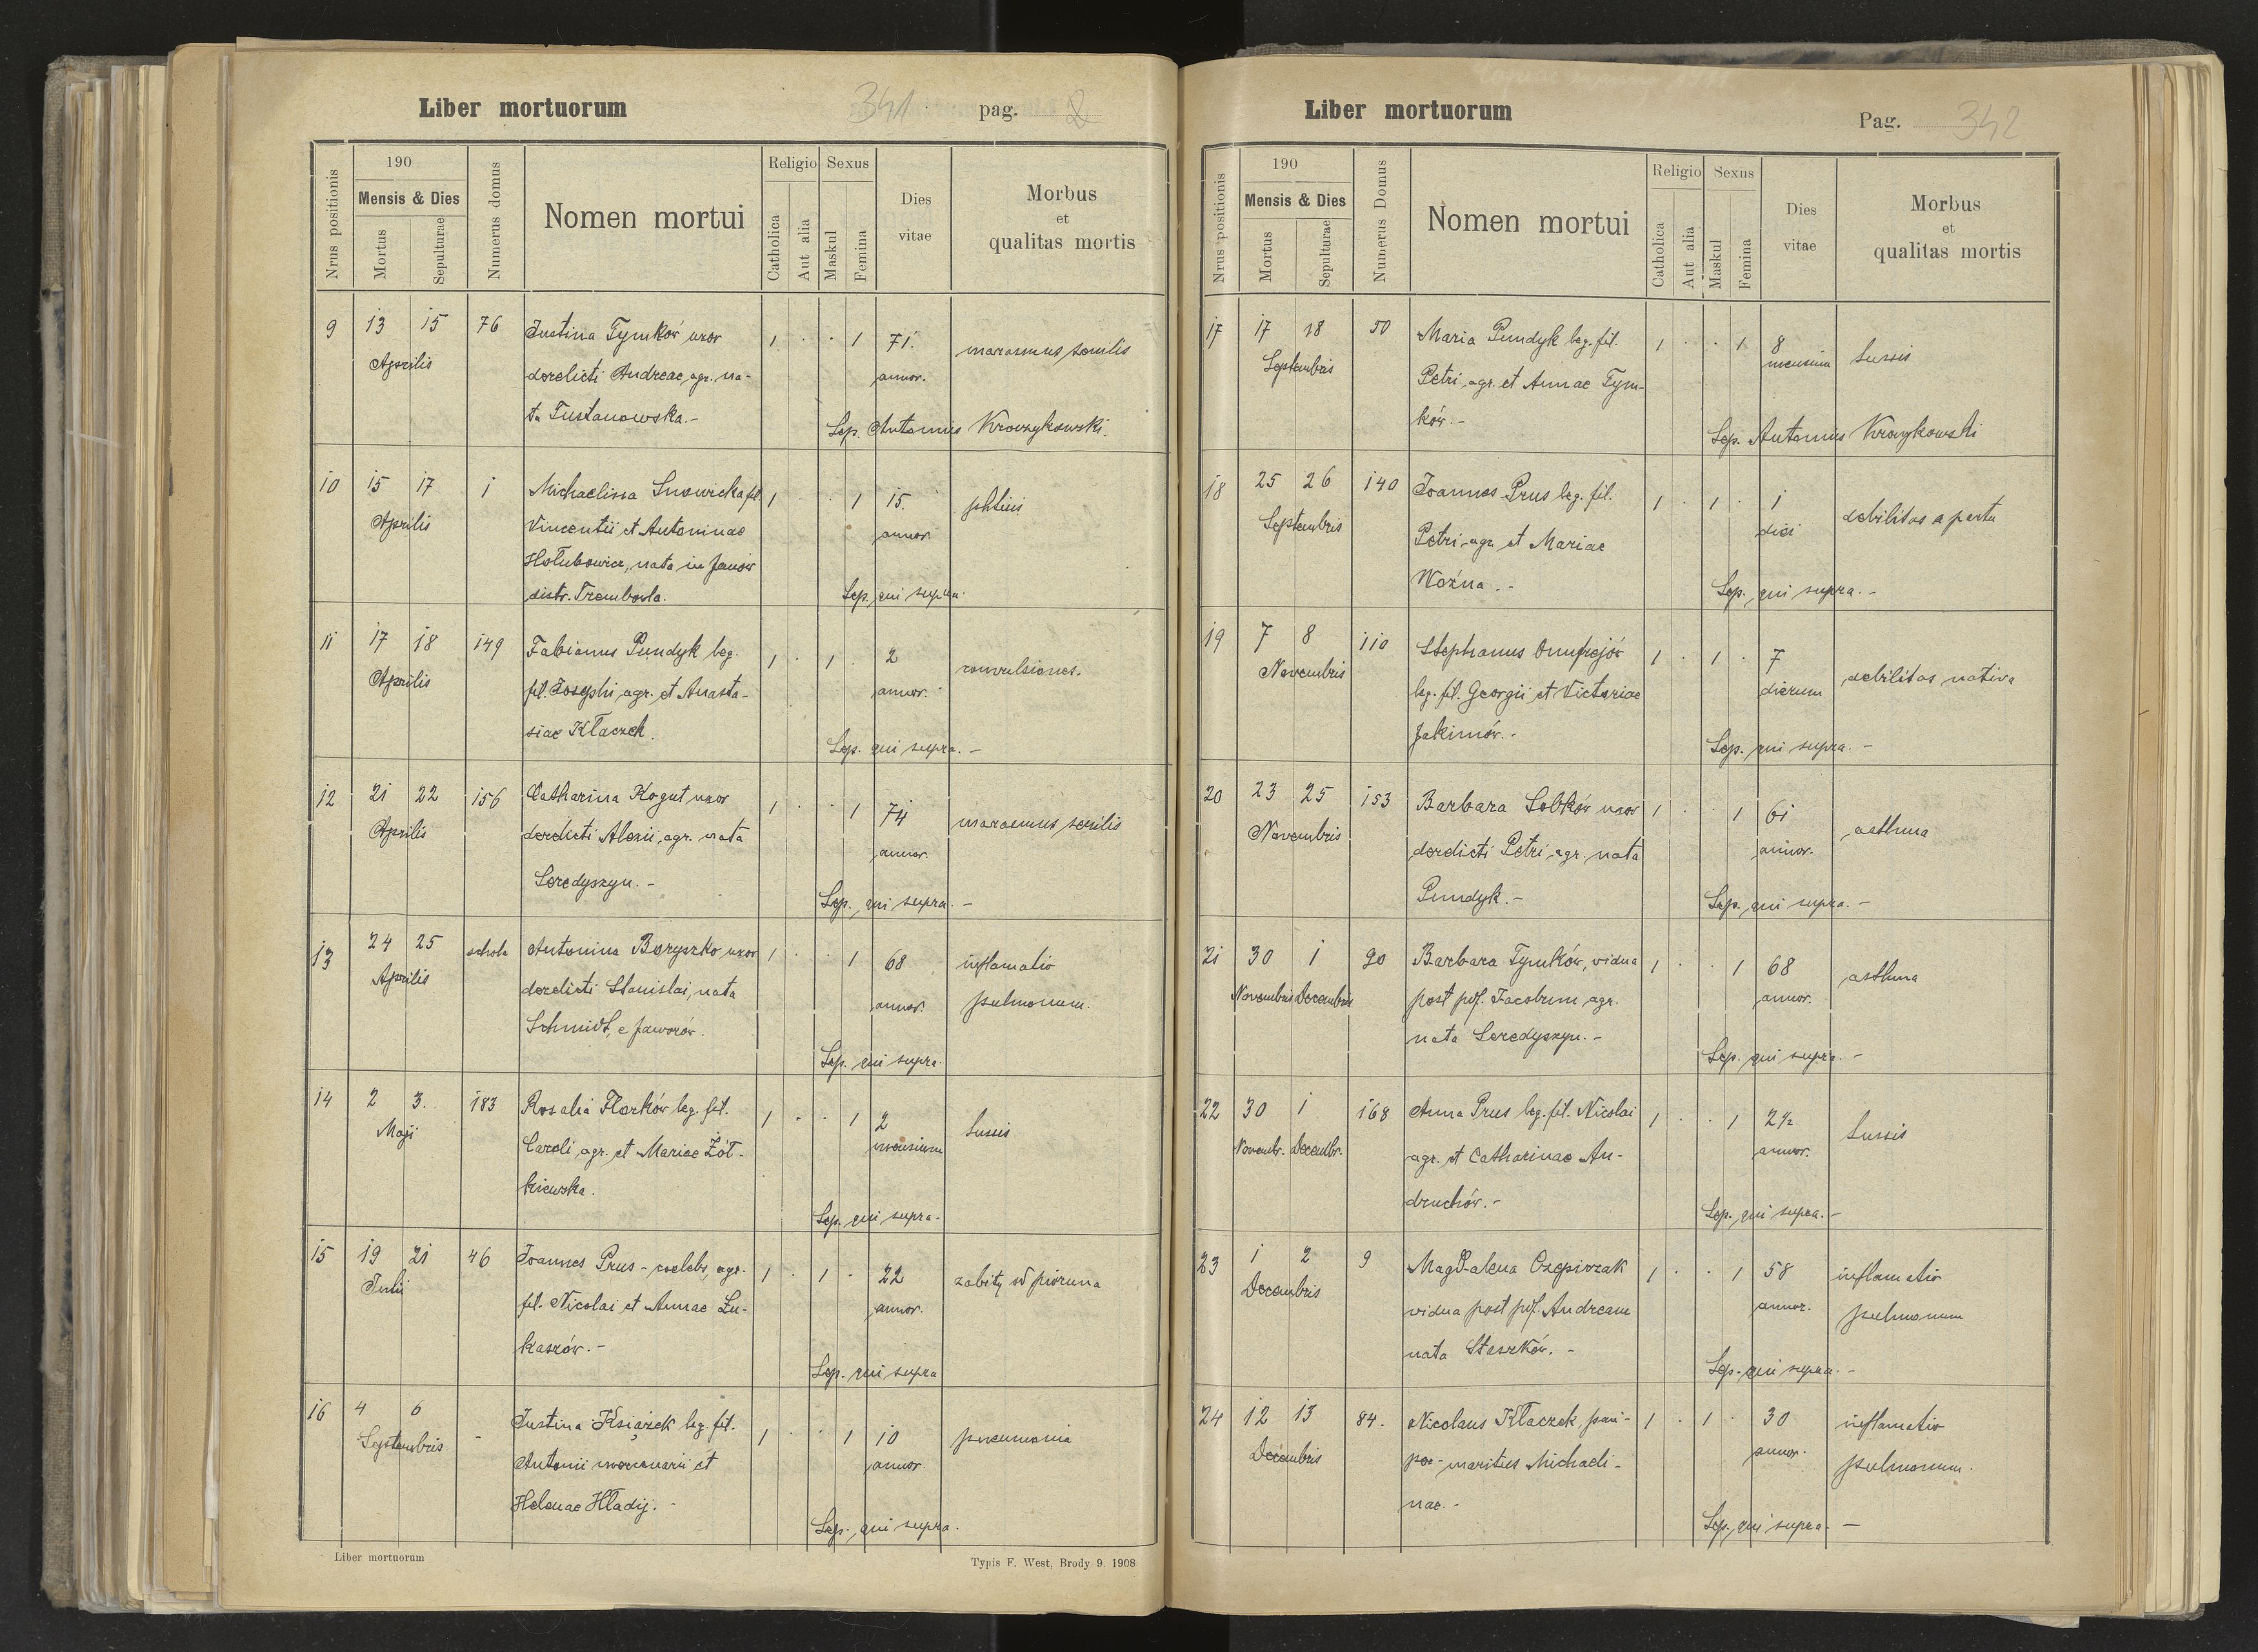 Liber mortuorum 341 pag. 2
Nrus positionis
190
Mensis & Dies
Mortus
Sepulturae
Numerus domus
Nomen mortui
Religio
Catholica
Aut alia
Sexus
Maskul
Femina
Dies
vitae
Morbus
et
qualitas mortis
9 13 15 76 Justina Tymków uxor 1 . . 1 71. marasmus senilis
Aprilis derelicti Andreae, agr. na- annor.
ta Tustanowska.-
Sep. Antonius Kroczykowski.
10 15 17 1 Michaelina Snowicka fil. 1 . . 1 15. phtisis
Aprilis Vincentii et Antoninae annor.
Hołubowicz, nata in Janów
distr. Trembowla. Sep. qui supra.
11 17 18 149 Fabianus Pundyk leg. 1 . 1 . 2 convulsiones.
Aprilis fil. Josephi agr. et Anasta- annor.
siae Kłaczek.
Sep. qui supra. -
12 21 22 156 Catharina Kogut uxor 1 . . 1 74 marasmus senilis
Aprilis derelicti Alexii, agr. nata annor.
Seredyszyn. -
Sep. qui supra. -
13 24 25 schola Antonina Boryszko uxor 1 . . 1 68 inflamatio
Aprilis derelicti Stanislai, nata annor. pulmonum.
Schmidt, e Jaworów.
Sep. qui supra.
14 2 3. 183 Rosalia Florków leg. fil. 1 . . 1 2 tussis
Maji Caroli agr. et Mariae Żół- mensium
kiewska.
Sep. qui supra.
15 19 21 46 Joannes Prus - coelebs, agr. 1 . 1 . 22 zabity od pioruna
Julii fil. Nicolai et Annae Łu- annor.
kaszów. -
Sep. qui supra
16 4 6 - Justina Książek leg. fil. 1 . . 1 10 pneumonia
Septembris Antonii mercenarii et annor.
Helenae Hładij. -
Sep. qui supra.
Liber mortuorum
Typis F. West, Brody 9. 1908
Liber mortuorum Pag. 342
Nrus positionis
190
Mensis & Dies
Mortus
Sepulturae
Numerus Domus
Nomen mortui
Religio
Catholica
Aut alia
Sexus
Maskul
Femina
Dies
vitae
Morbus
et
qualitas mortis
17 17 18 50 Maria Pundyk leg. fil. 1 . . 1 8 tussis
Septembris Petri, agr. et Annae Tym- mensium
ków. -
Sep. Antonius Kroczykowski
18 25 26 140 Joannes Prus leg. fil. 1 . 1 . 1 debilitas a partu
Septembris Petri, agr. et Mariae diei
Woźna. -
Sep. qui supra. -
19 7 8 110 Stephanus Onufrejów 1 . 1 . 7 debilitas nativa
Novembris leg. fil. Georgii et Victoriae dierum
Jakimów. -
Sep. qui supra. -
20 23 25 153 Barbara Sobków uxor 1 . . 1 61 asthma
Novembris derelicti Petri, agr. nata annor.
Pundyk. -
Sep. qui supra. -
21 30 1 90 Barbara Tymków, vidua 1 . . 1 68 asthma
Novembris Decembris post pef. Jacobum agr. annor.
nata Seredyszyn. -
Sep. qui supra. -
22 30 1 168 Anna Prus leg. fil. Nicolai 1 . . 1 2½ tussis
Novembr. Decembr. agr. et Catharinae An- annor.
druchów. -
Sep. qui supra. -
23 1 2 9 Magdalena Czepirzak 1 . . 1 58 inflamatio
Decembris vidua post pef. Andream annor. pulmonum
nata Staszków. -
Sep. qui supra. -
24 12 13 84. Nicolaus Kłaczek, pau- 1 . 1 . 30 inflamatio
Decembris per - maritus Michaeli- annor. pulmonum.
nae. -
Sep. qui supra. -